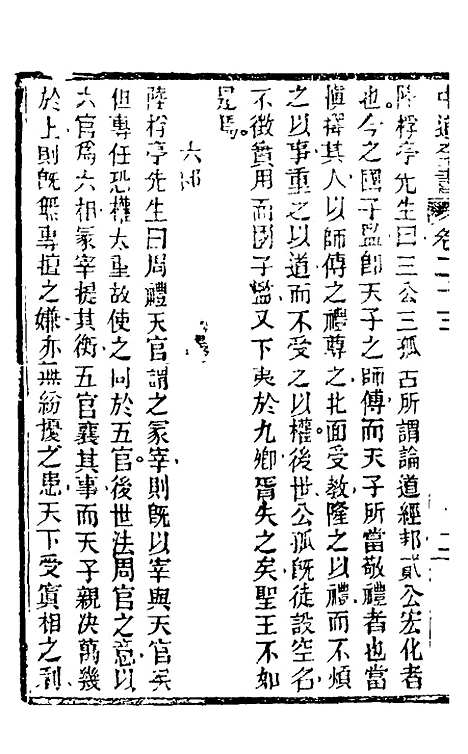 陸桴亭先生曰三公三孤古所謂論道經邦貳公宏化者
也今之國子監卽天子之師傅而天子所當敬禮者也當
愼擇其人以師傅之禮尊之北面受教隆之以禮而不煩
之以事重之以道而不受之以權後世公孤旣徒設空名
不徵實用而國子監又下夷於九卿胥失之矣聖王不如
是焉
六部
陸桴亭先生曰周禮天官謂之冢宰則旣以宰與天官矣
但專任恐權太重故使之同於五官後世法周官之意以
六官爲六相冢宰提其衡五官襄其事而天子親决萬幾
於上則旣無專擅之嫌亦無紛擾之患天下受實相之利